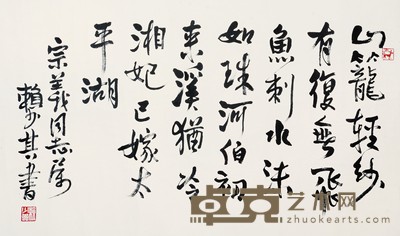 山籠輕紗
有復無飛
魚刺水沫
如珠河伯初
來溪猶冷
湘妃已嫁太
平湖
宗義同志属
賴少其書
卓克艺术网
zhuokearts.com